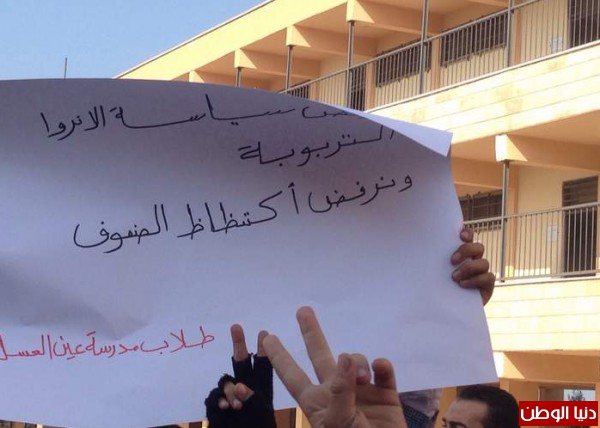 سياسة الانروا
التربوية
ونرفض أكتظاظ الصفوف
طلاب مدرسة عين العسل
دنيا الوطن